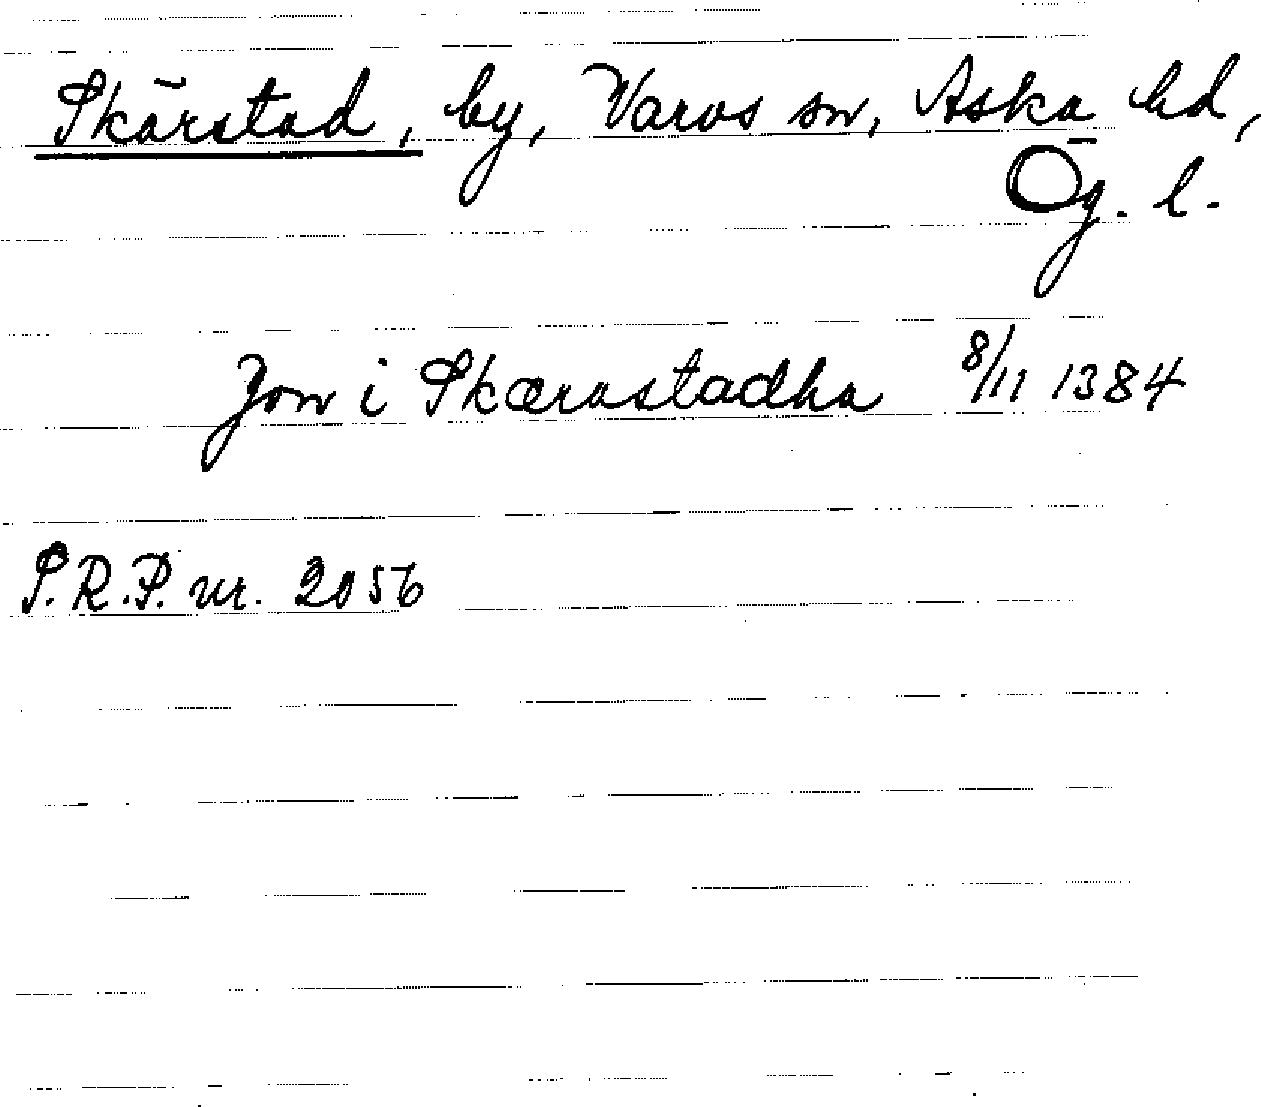 Skärstad, by, Varvs sn, Aska hd,
Ög. l.
Jon i Skærastadha 8/11 1384
P.R.P. nr. 2056